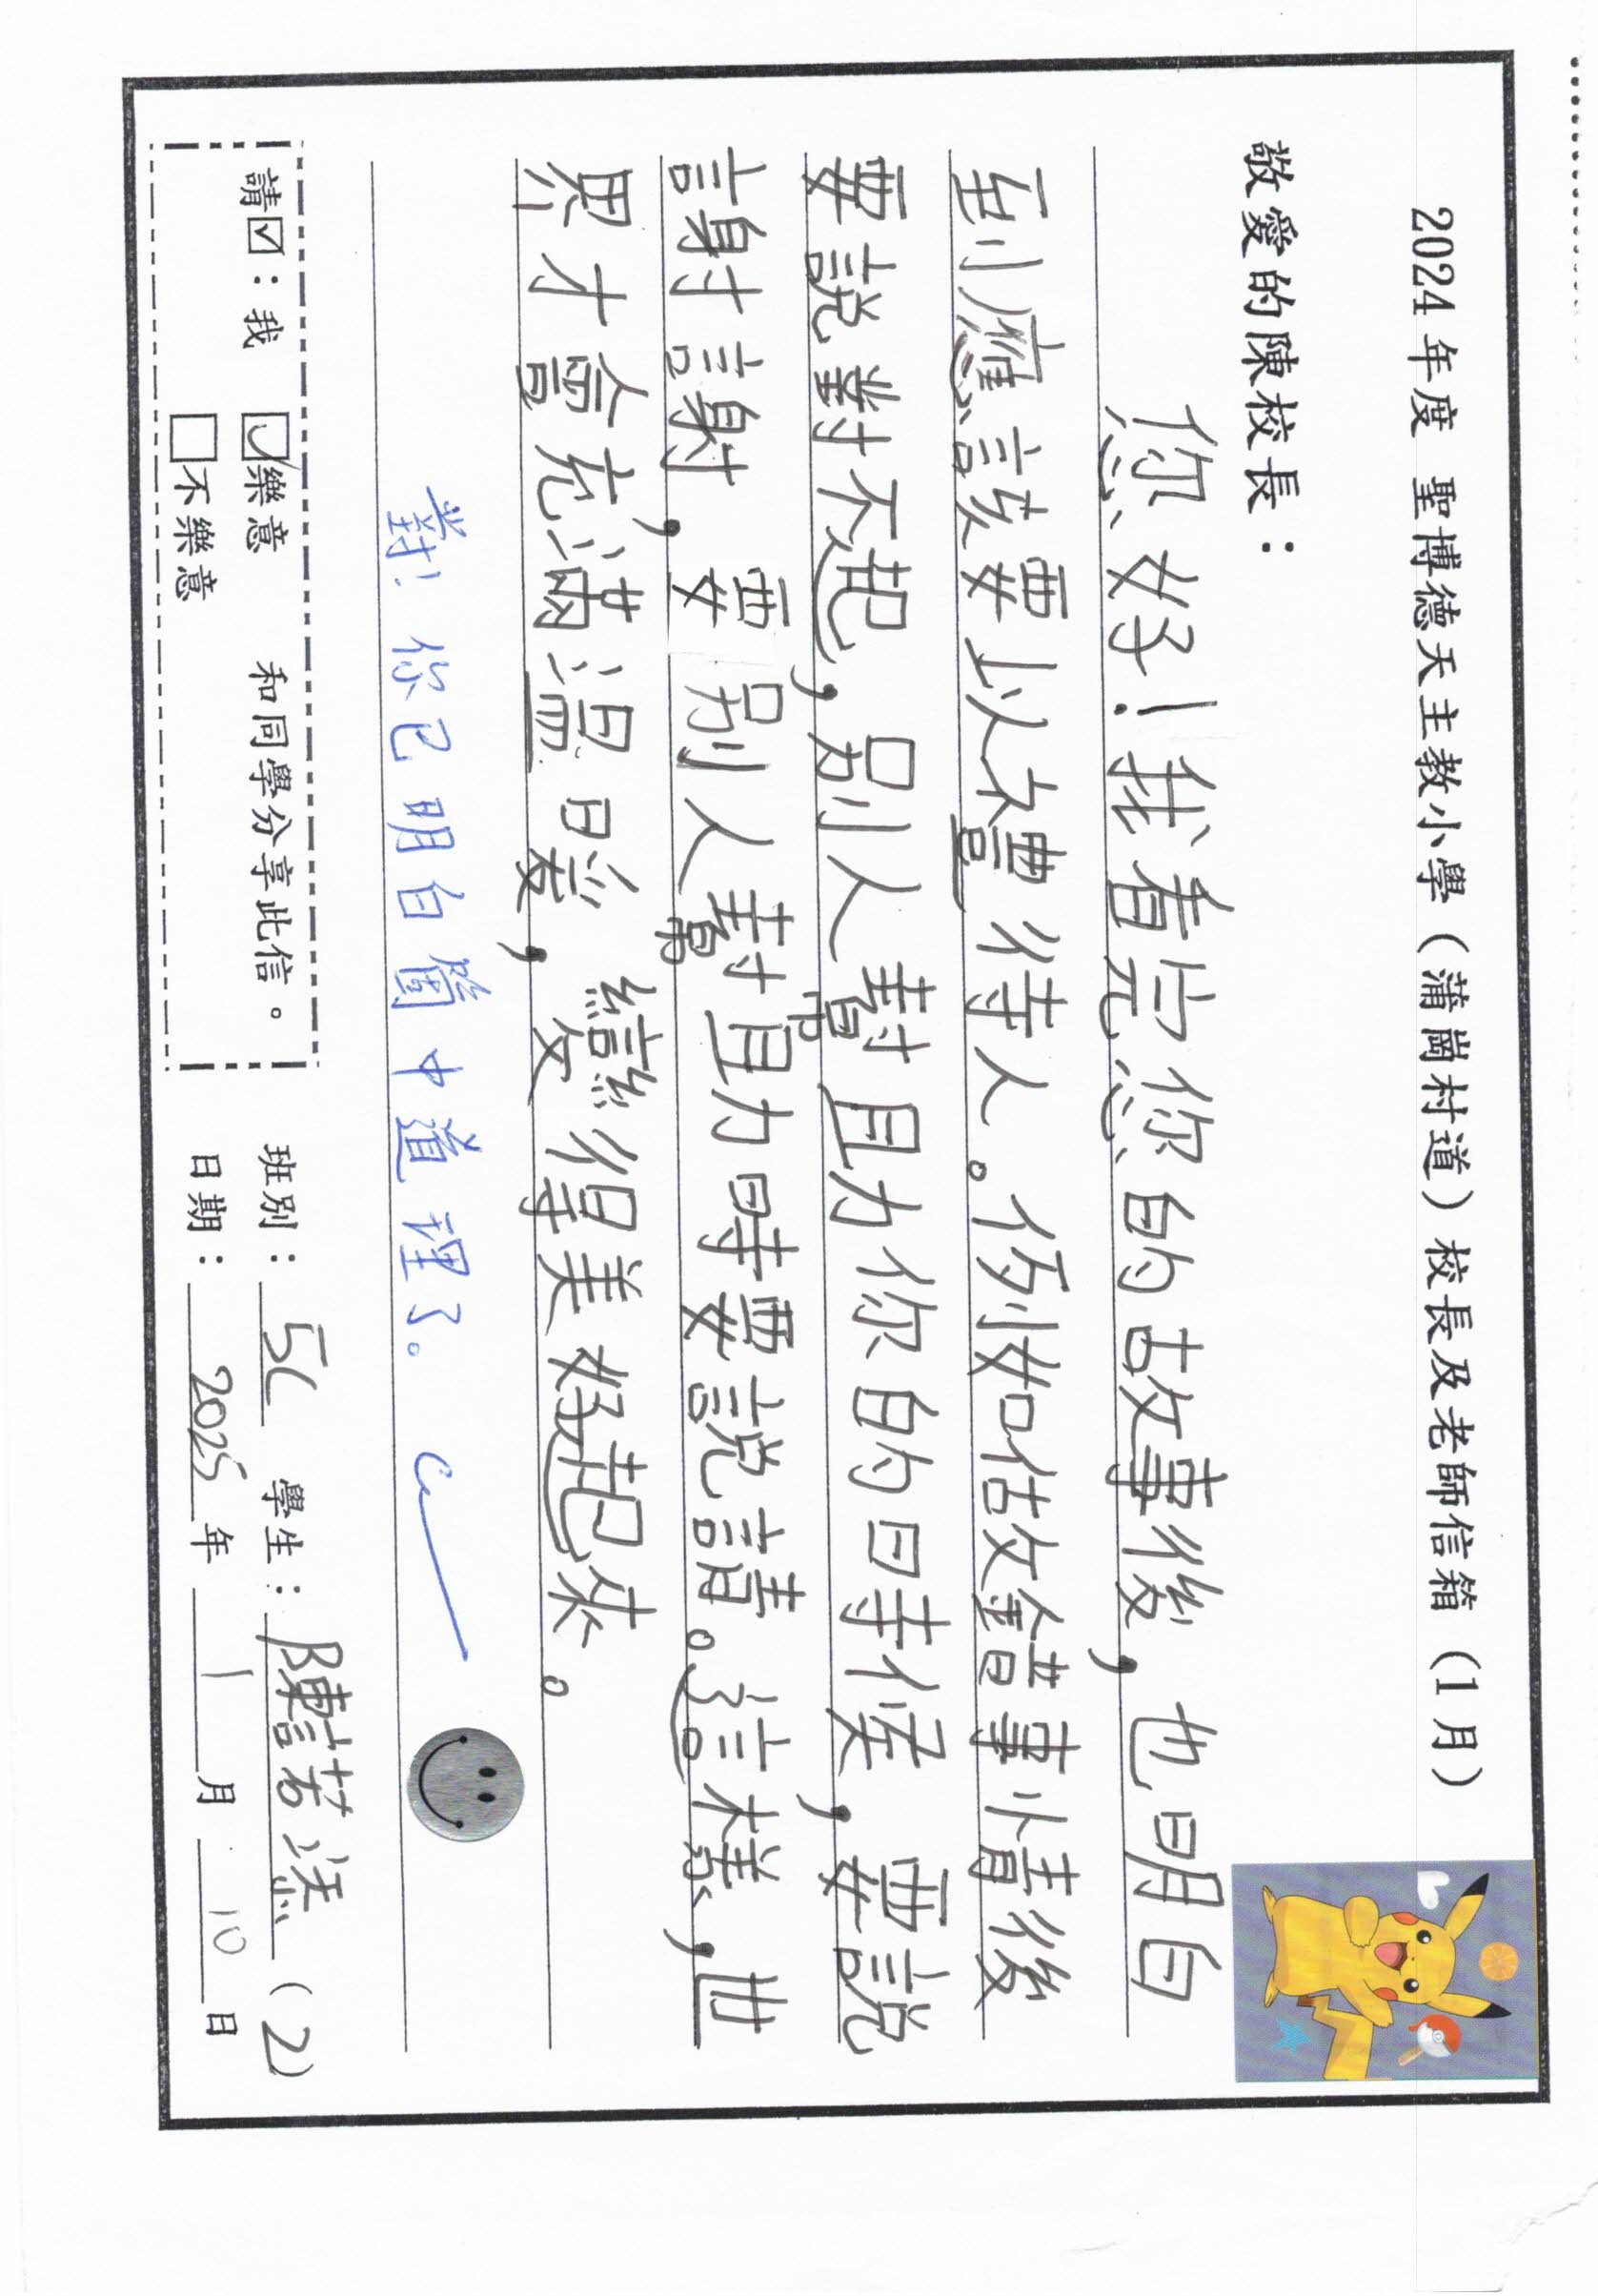 2024年度 聖博德天主教小學（蒲崗村道）校長及老師信箱（1月）
敬愛的陳校長：
您好！我看完您的故事後，也明白
到應該要以禮待人。例如做錯事情後
要說對不起，別人幫助你的時候，要說
謝謝，要別人幫助時要說請。這樣，世
界才會充滿溫暖，變得美好起來。
對！你已明白箇中道理了。
請☑：我 ☑樂意 和同學分享此信。
□不樂意
班別：5C 學生：陳芸 (2)
日期：2025年1月10日